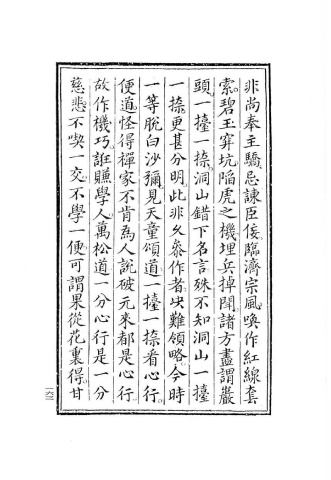 非尚奉主驕忌諫臣佞臨濟宗風喚作紅線套
索碧玉穽坑陷虎之機埋兵掉鬬諸方盡謂巖
頭一擡一捺洞山錯下名言殊不知洞山一擡
一捺更甚分明此非久參作者少難領略今時
一等脫白沙彌見天童頌道一擡一捺看心行
便道怪得禪家不肯為人說破元來都是心行
故作機巧誑賺學人萬松道一分心行是一分
慈悲不喫一交不學一便可謂果從花裏得甘
一六三